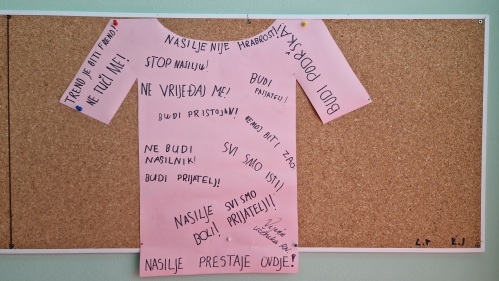 NASILJE NIJE HRABROST!
TREND JE BITI FREND!
NE TUČI ME!
BUDI PODRŠKA!
STOP NASILJU!
NE VRIJEĐAJ ME!
BUDI
PRIJATELJ!
BUDI PRISTOJAN!
NEMOJ BITI ZAO
NE BUDI
NASILNIK!
SVI SMO ISTI!
BUDI PRIJATELJ!
NASILJE
BOLI!
SVI SMO
PRIJATELJI!
NASILJE PRESTAJE OVDJE!